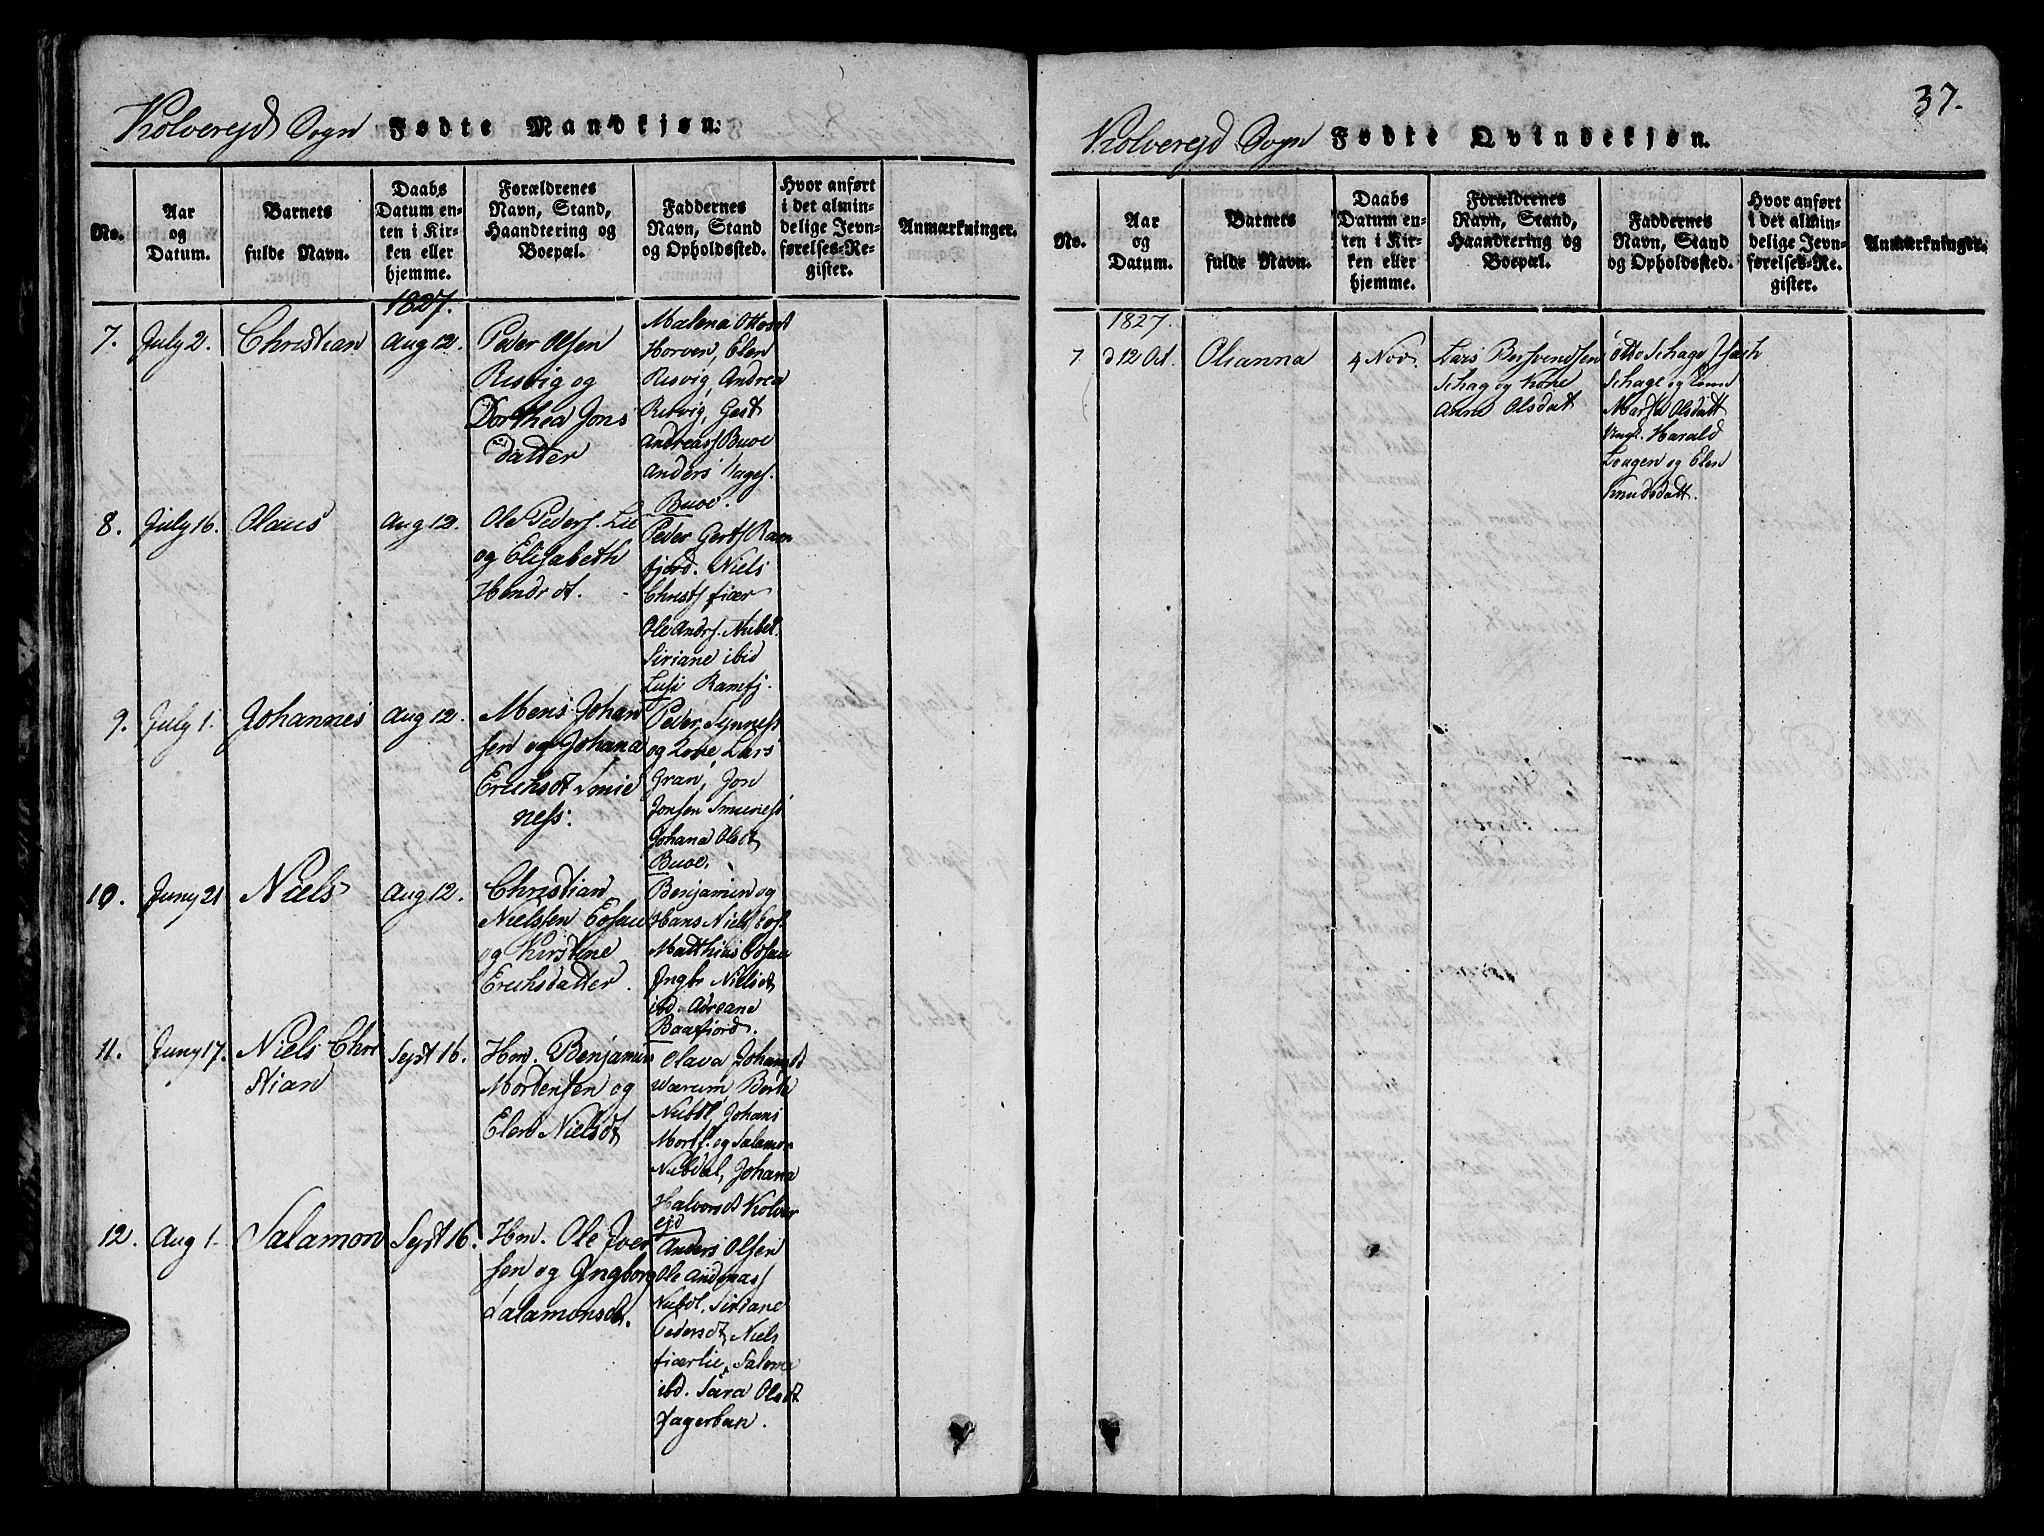 Kolverejd Sogn Fødte Mandkjøn.
No.
Aar
og
Datum.
Barnets
fulde Navn.
Daabs
Datum en-
ten i Kir-
ken eller
hjemme.
Forældrenes
Navn, Stand,
Haandtering og
Boepæl.
Faddernes
Navn, Stand
og Opholdssted.
Hvor anført
i det almin-
delige Jevn-
førelses-Re-
gister.
Anmærkninger.
1827.
7. July 2. Christian Aug 12.
Peder Olsen
Risvig og
Dorthea Jons
datter
Malena Ottosd
Horven, Elen
Risvig, Andrea
Risvig, Gest
Andreass Buoe
Anders
Buoe.
8. July 16. Olaus Aug 12.
Ole Peders. Lie
og Elisabeth
Hendr dt.
Peder Gerts Ram
fjord. Niels
Christs fiær
Ole Andrs. Nubdl.
Siriane ibid
Lusi Ramfj.
9. July 1. Johannes Aug 12.
Mens Johan
sen og Johana
Erichsdt Smie
ness.
Peder Synness
og Kone, Lars
Gran, Jon
Jonsen Smieness
Johana Olsdt
Buoe.
10. Juny 21 Niels Aug 12.
Christian
Nielssen Eosau
og Kirstine
Erichsdatter.
Benjamin og
Hans Niels
Matthias Eosau
Ingbr Nielsdt
ibd. Adreane
Baafiord.
11. Juny 17. Niels Chri
stian
Sept 16.
Hm. Benjamin
Mortensen og
Elen Nielsdt
Olava Johansdt
Værum Berte
Nubdl, Johans
Morts. og Salamon
Nubdal, Johana
Halvorsdt Kolver
ejd
12. Aug 1. Salamon Sept 16.
Hm. Ole Iver
sen og Ingborg
Salamonsdt.
Anders Olsen
Ole Andreass
Nubdl. Siriane
Pedersdt, Niels
fiærlie, Salome
ibd. Sara Olsdt
Fagerban.
37.
Kolverejd Sogn Fødte Qvindekjøn.
No.
Aar
og
Datum.
Barnets
fulde Navn.
Daabs
Datum en-
ten i Kir-
ken eller
hjemme.
Forældrenes
Navn, Stand,
Haandtering og
Boepæl.
Faddernes
Navn, Stand
og Opholdssted.
Hvor anført
i det almin-
delige Jevn-
førelses-Re-
gister.
Anmærkninger.
1827.
7 d 12 Oct. Olianna 4 Nov.
Lars Bersvendsen
Schag og Kone
Anne Olsdat
Otto Schage Isach
Schage og Kone
Martha Olsdatt
Harald
Laagen og Elen
Knudsdatt.